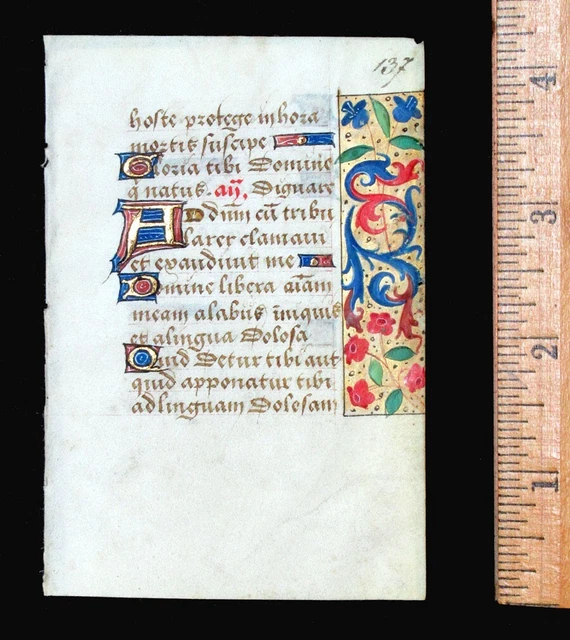 137
hoste protege in hora
mortis suscipe
Gloria tibi Domine
q̄ natus. añ. Dignare
Ad dnm cū tribu
larer clamaui
et exaudiuit me
Domine libera aīam
meam a labiis iniquis
et a lingua Dolosa
Quid Detur tibi aut
quid apponatur tibi
ad linguam Dolosam
4
3
2
1